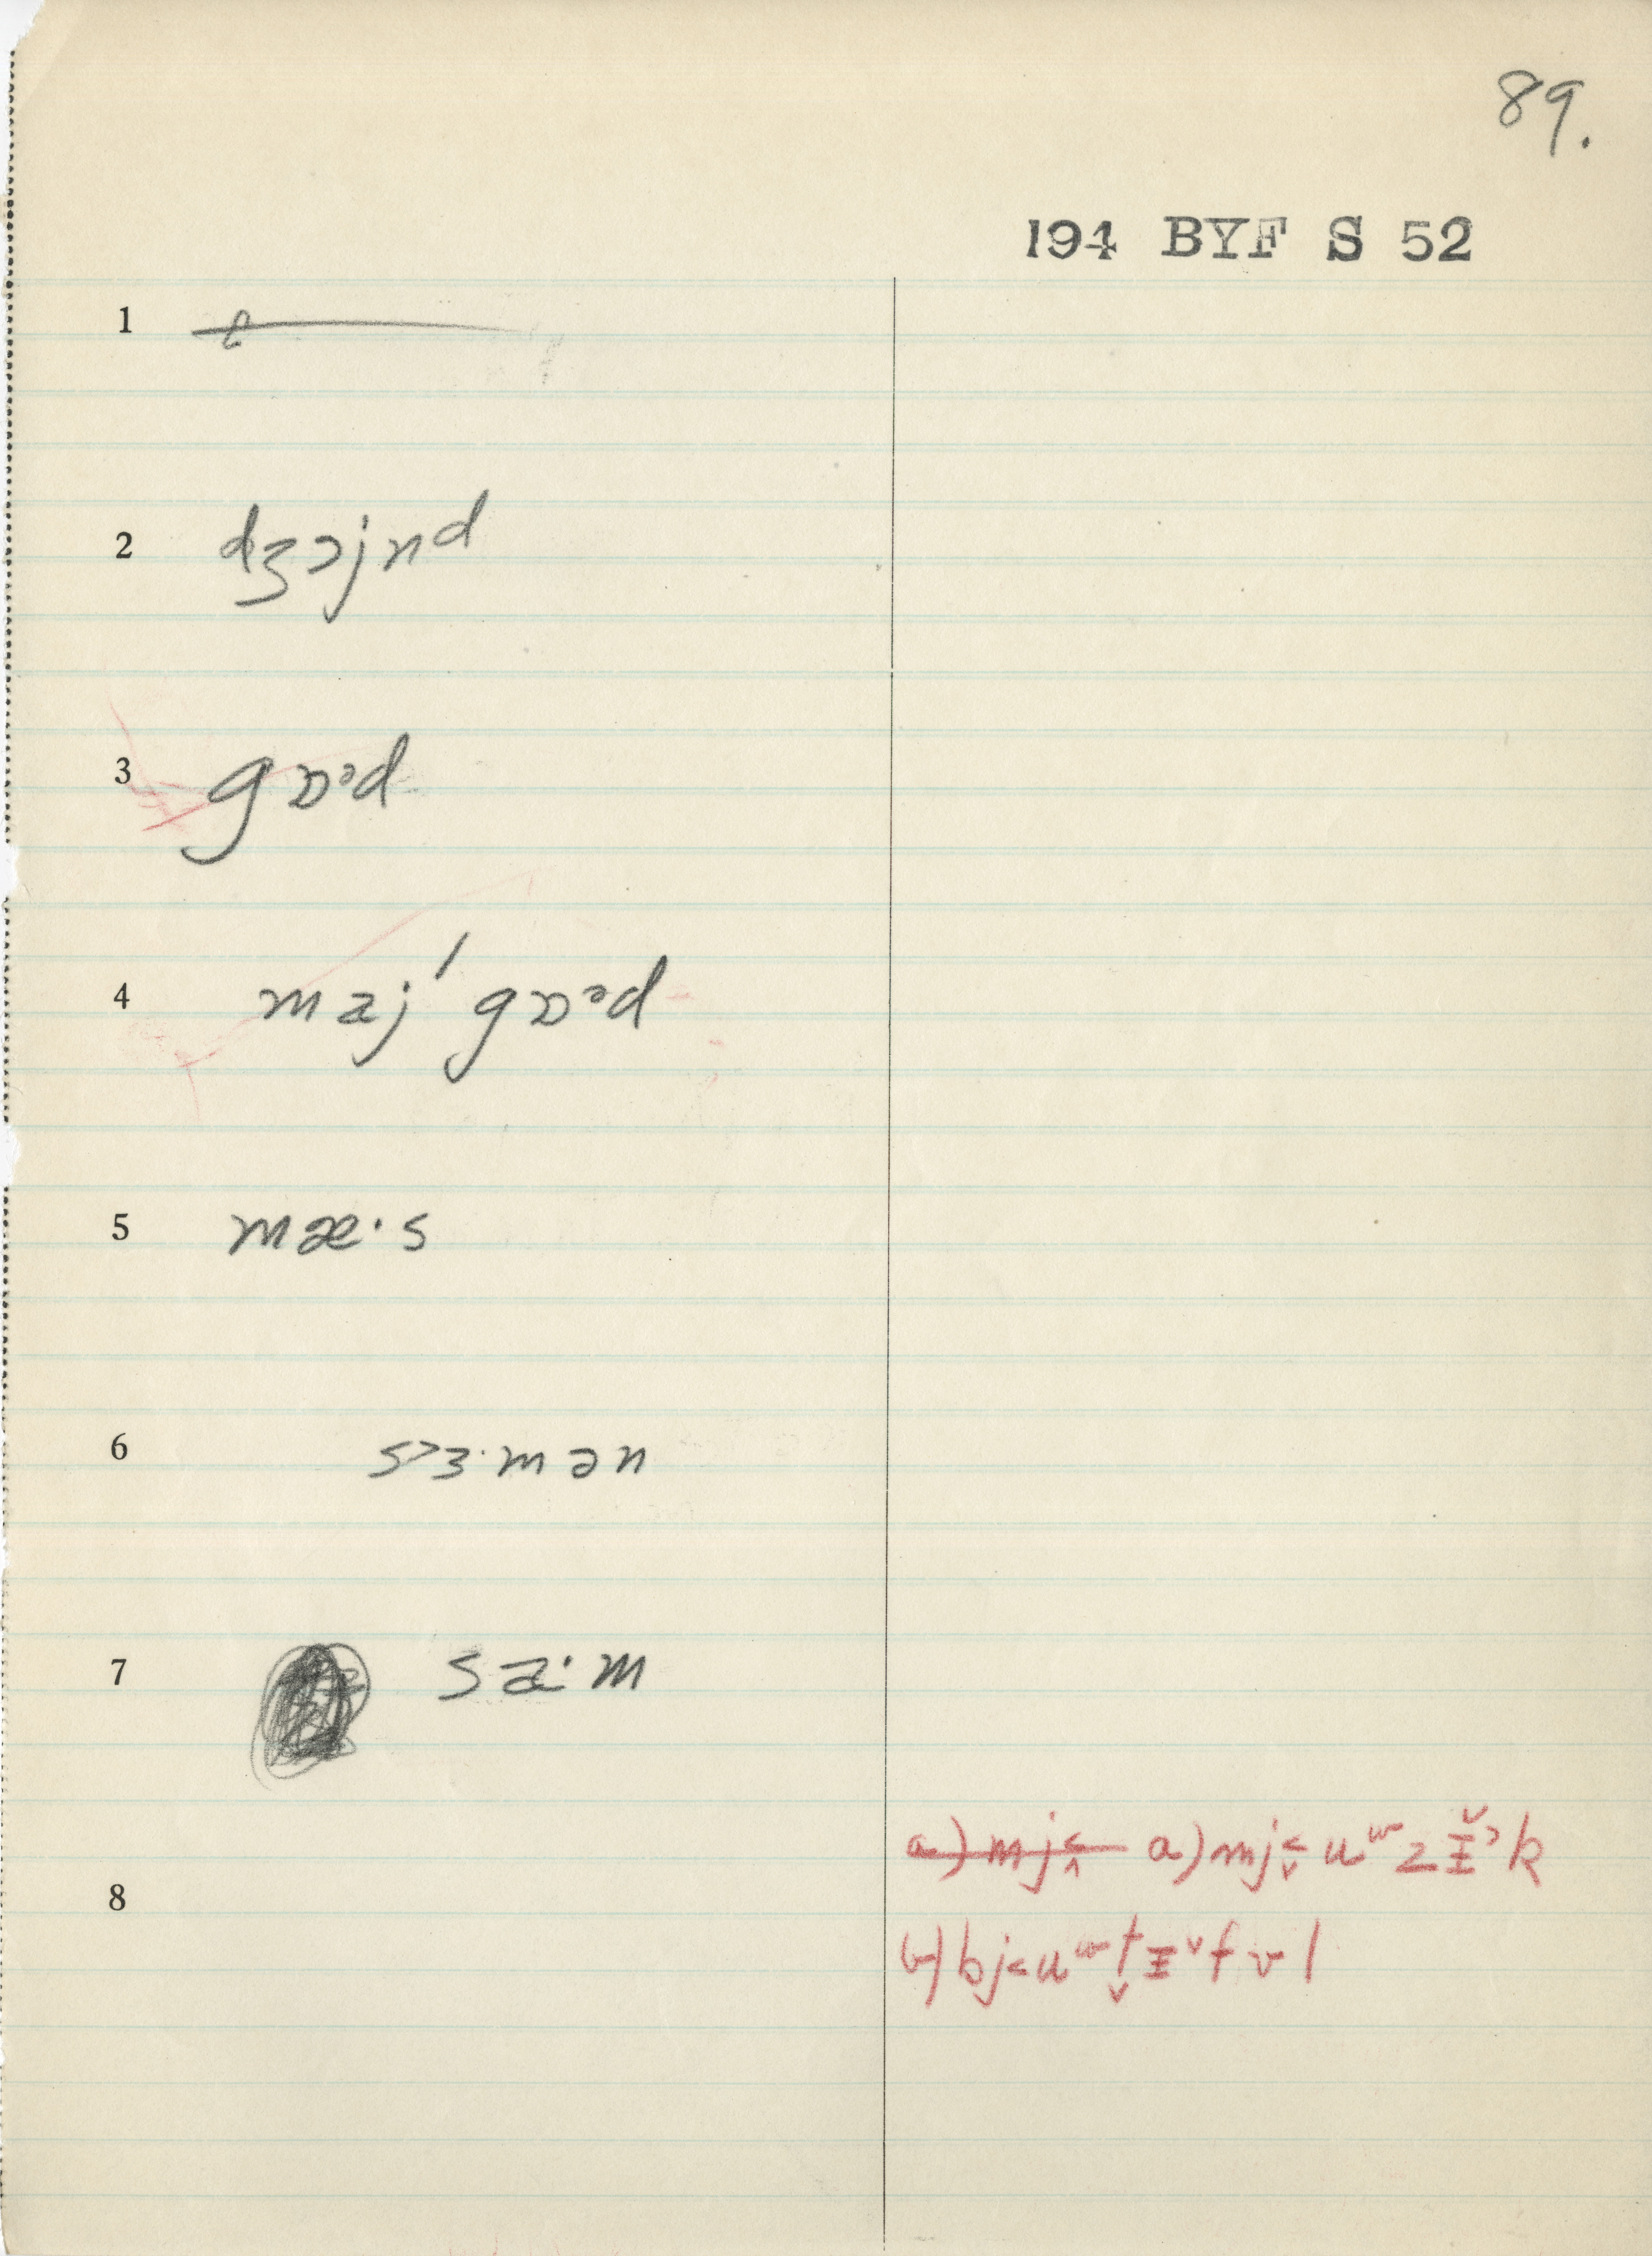 89.
194 BYF S 52
1
2 dʒɔjnd
3 gɒᵊd
4 maj ˈgɒᵊd
5 mæ·s
6 s>ɜ·mən
7 sa·m
8
a) mj< a) mj<uʷzɪ̵ˀk
b) bj<uʷt̬ɪ̵ˇfvl